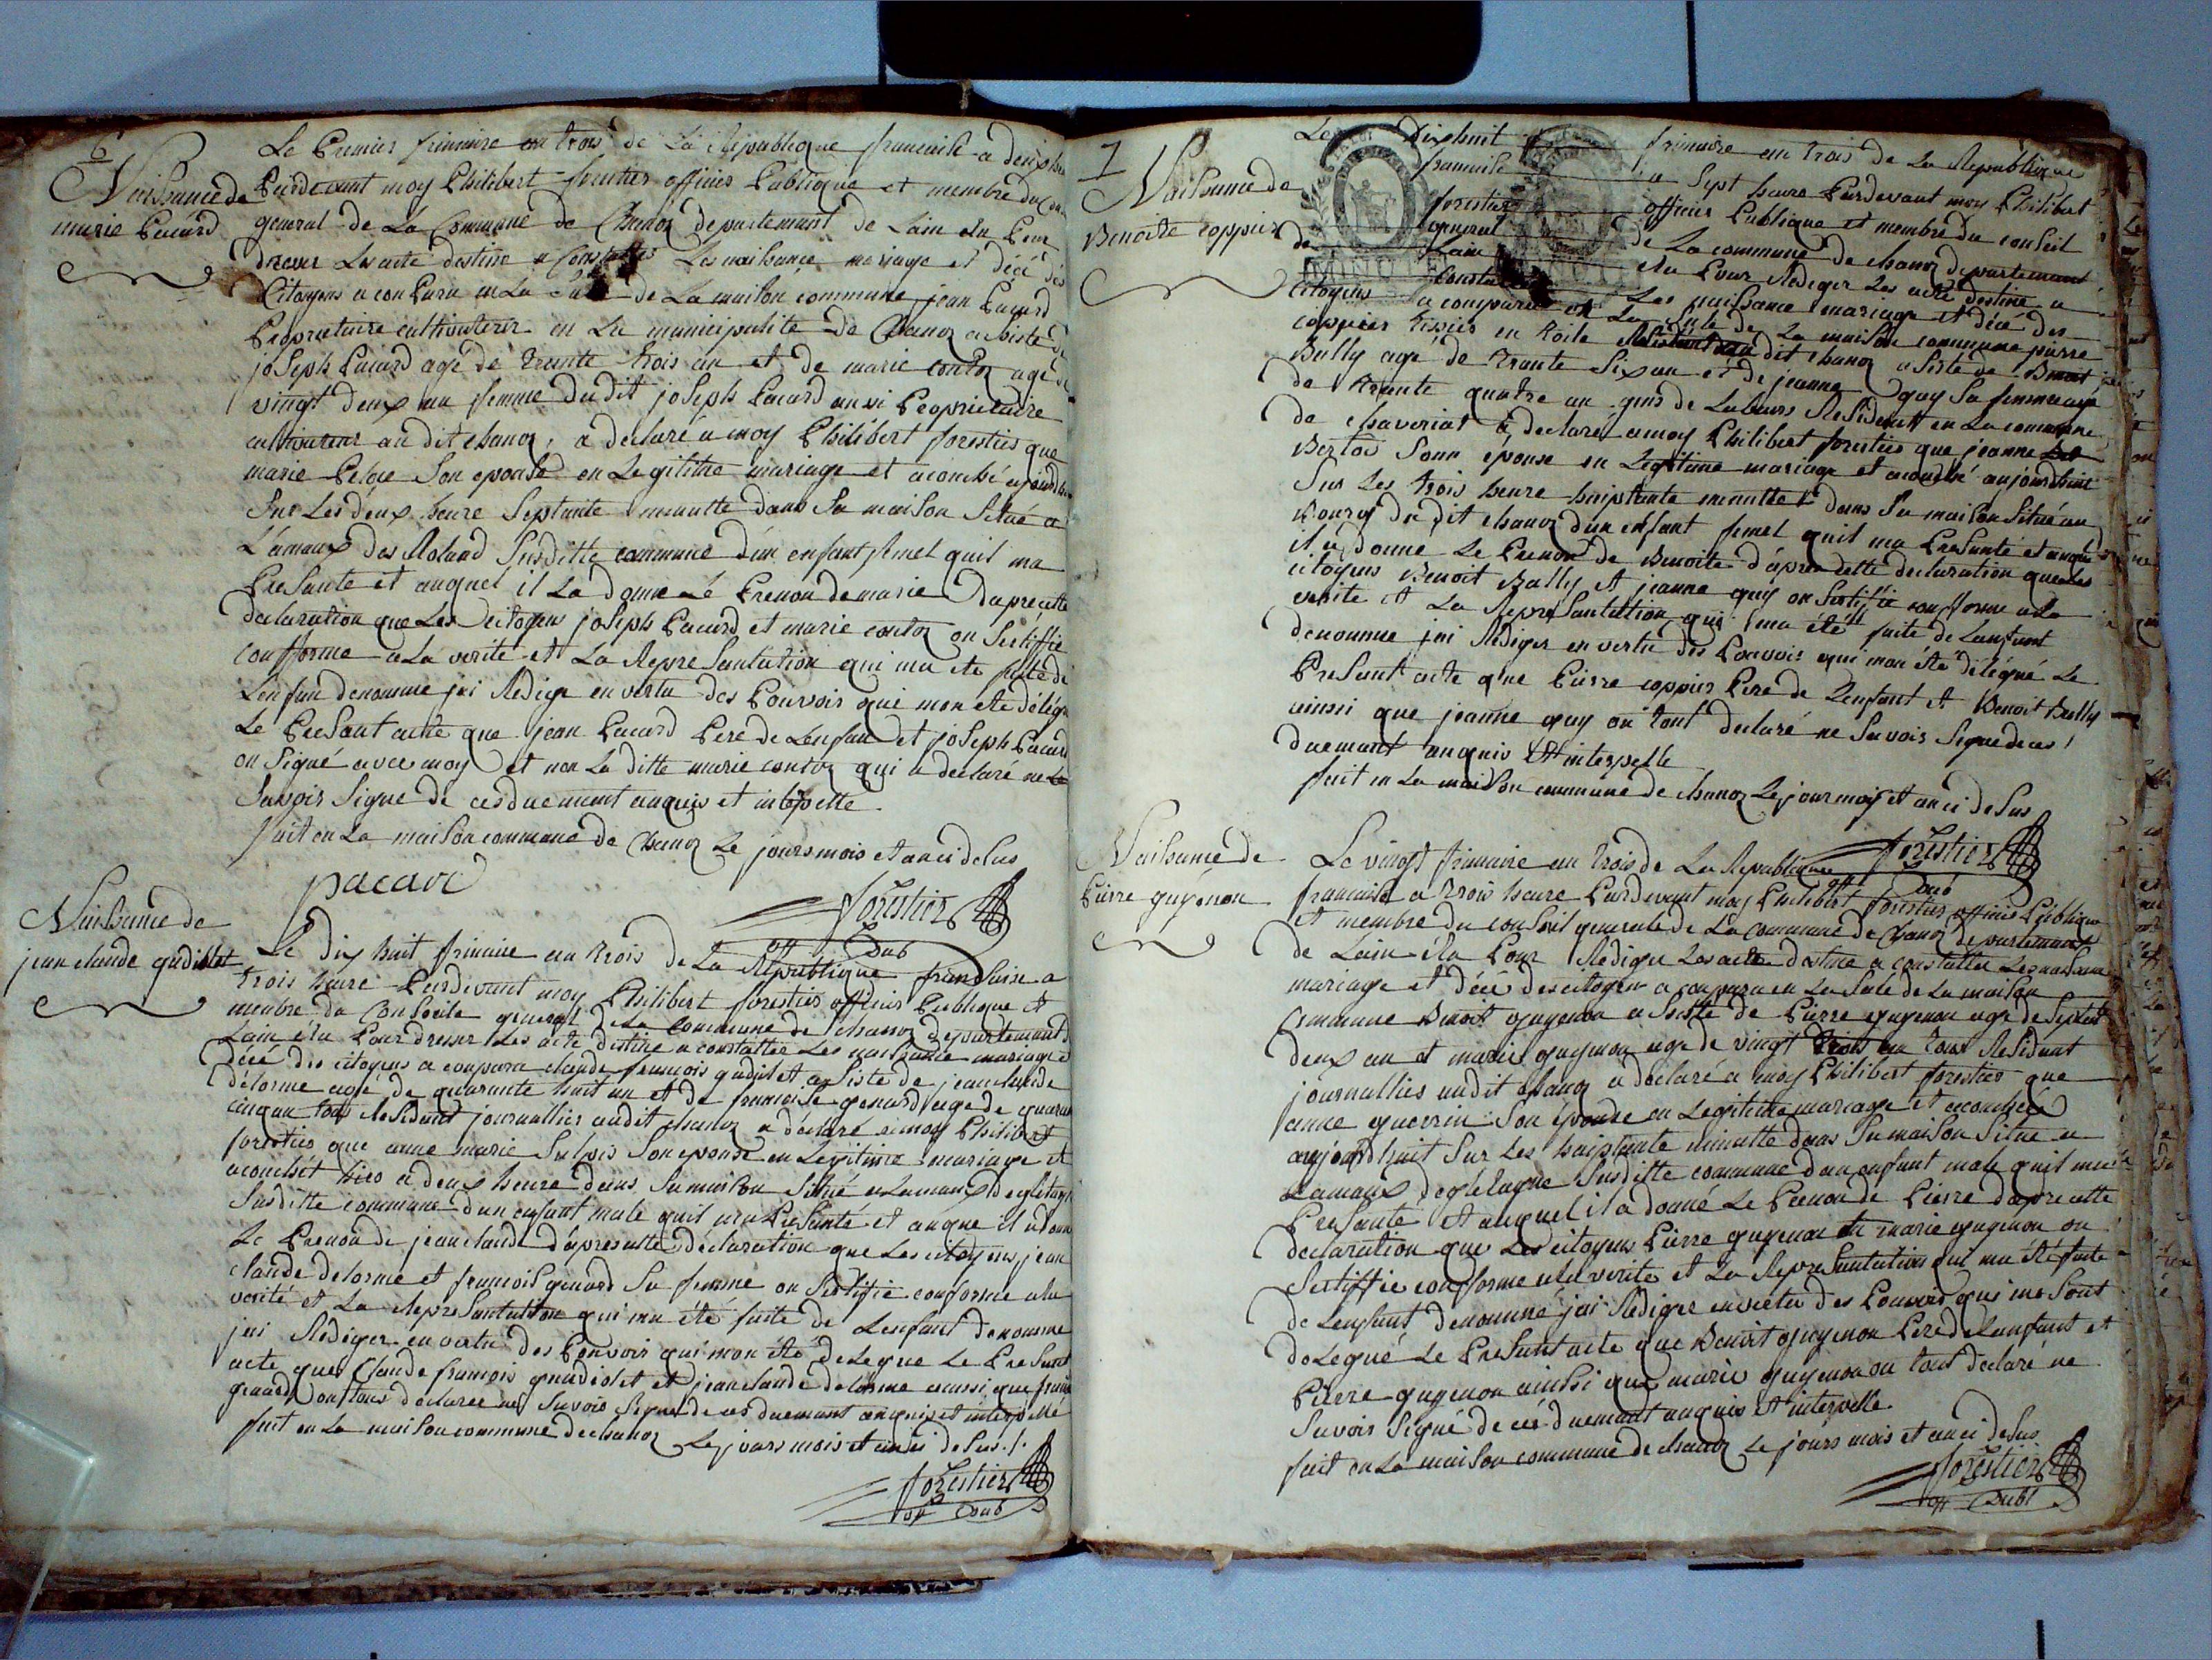 6
Naissance de
marie Pacard
Le Premier frimaire an trois de La Republique francaise a deux heure
Pardevant moy Philibert forestier officier Publique et membre du
general de La Commune de Chanoz departement de Lain elu Pour
dresser Les acte destine a Constatter Les naissance mariage et décé des
Citoyens a conParu en La Sale de La maison commune jean Pacard
Proprietaire cultivaterer en La municipalité de Chanoz assisté de
joseph Pacard agé de trante trois an et de marie contoz agé de
vingt deux an femme du dit joseph Pacard ausi Proprietaire
cultivateur au dit chanoz, a declaré a moy Philibert forestier que
marie Pelue Son epouse en Legitime mariage et acouché aujourdhui
Sur Les deux heure Septante minutte dans Sa maison Situé a
Lamaux des Roland Susditte commune d'un enfant femel quil ma
PreSante et auquel il La donne Le Prenon de marie Dapré cette
declaration que Les citoyen joseph Pacard et marie contoz on Sertiffie
confforme a La verité et La RepreSantation qui ma ete faite de
Lenfan denomme jai Redige en vertu des Pouvoir qui mon ete délégue
Le PreSant acte que jean Pacard Pere de Lenfan et joseph Pacard
on Signé avec moy et non La ditte marie contoz qui a declaré ne
Savoir Signe de ces duement enquis et interpelle
fait en La maison commune de Chanoz Le jours mois et an ci desus
pacard
forestier
off Pub
Naissance de
jean claude gudillet
Le dix huit frimaire an trois de La Republique fransaise a
trois heure Pardevant moy Philibert forestier officier Publique et
membre du Conseile general de La Commune de Chanoz departement
Lain élu Pour dresser Les acte destine a constatter Les naissance mariage
décé des citoyens a conparu claude francois gudillet aSiste de jean claude
delorme agé de quarante huit an et de francoise genard age de quarante
cinq an tous Résidant journallier audit chanoz a déclaré a moy Philibert
forestier que anne marie Sulpis Son epouse en Legitime mariage et
acouchét hier a deux heure dans Sa maison Situé a Lamaux degletagne
Susditte commune d'un enfant male quil ma PreSanté et auque il a donne
Le Prenon de jean claude d'apres cette déclaration que Les citoyens jean
claude delorme et francoise genard Sa femme on Sertifie conforme a la
verité et La RepreSantation qui ma été faite de Lenfant denomme
jai Rediger en vertu des Pouvoir qui mon été delegue Le PreSant
acte que Claude francois gudillet et jean claude delorme aussi que
genard ont tous declarée ne Savoir Signe de ces duement enquis et interpellé
fait en La maison commune de chanoz Le jours mois et an ci desus ./.
forestier
off Pub
7
Naissance de
Benoite coppier
Le Dix huit frimaire an trois de La Republique
francaise a Sept heure Pardevant moy Philibert
forestier officier Publique et membre du conseil
general de La commune de chanoz departement
de Lain elu Pour Rediger Les acte destine a
constatter Les naissance mariage et décé des
citoyens a comparu en La Sale de La maison commune pierre
coppier tissier en toile Residant au dit chanoz aSisté de Benoit
Bully agé de trante Six an et de jeanne guy Sa femme agé
de trante quatre an gens de Labeurs Residant en La commune
de chaveriat a declaré a moy Philibert forestier que jeanne
Bertoz Sonn épouse en Legitime mariage et acouché aujourdhuit
Sur Les trois heure huiptante minutte dans Sa maison Situé au
Bourg du dit chanoz dun enfant femel quil ma PreSanté et auquel
il a donne Le Prenon de Benoite d'apres cette declaration que Les
citoyens Benoit Bully et jeanne guy on Sertifie confforme a La
verité et La RepreSantation qui ma été faite de Lanfant
denomme jai Rediger en vertu des Pouvoir qui mon été délégué Le
PreSant acte que Pierre coppier Pere de Lenfant et Benoit Bully
ainsi que jeanne guy on tout declaré ne Savoir Signe de ces
duement enquis et interpelle
fait en La maison commune de chanoz Le jour moy et an ci deSus
forestier
off Pub
Naissance de
Pierre guyénon
Le vingt frimaire an trois de La Republique
francaise a trois heure Pardevant moy Philibert forestier officier Publique
et membre du conseil generale de La commune de chanoz departement
de Lain élu Pour Rediger Les acte destine a constatter Les naissance
mariage et décé des citoyen a conparu en La Sale de La maison
commune Benoit guyenon aSisté de Pierre guyenon agé de Septant
deux an et marie guyenon age de vingt trois an tous Residant
journallier audit chanoz a declaré a moy Philibert forestier que
anne guerrin Son épouse en Legitime mariage et acouchée
aujourdhuit Sur Les huiptante minutte dans Sa maison Situe a
Lamaux deglelagne Susditte commune d'un enfant male quil ma
PreSante et auquel il a donné Le Prenon de Pierre dapre cette
declaration que Les citoyens Pierre guyenon et marie guyenon on
Sertiffie conforme a la verite et La RepreSantation qui ma été faite
de Lenfant denommé jai Rediger en vertu des Pouvoir qui me Sont
delegué Le PreSant acte que Benoit guyenon Pere de Lanfant et
Pierre guyenon ainssi que marie guyenon on tout declaré ne
Savoir Signé de ces duemant enquis et interpelle
fait en La maison commune de chanoz Le jours mois et an ci deSus
forestier
off Publ